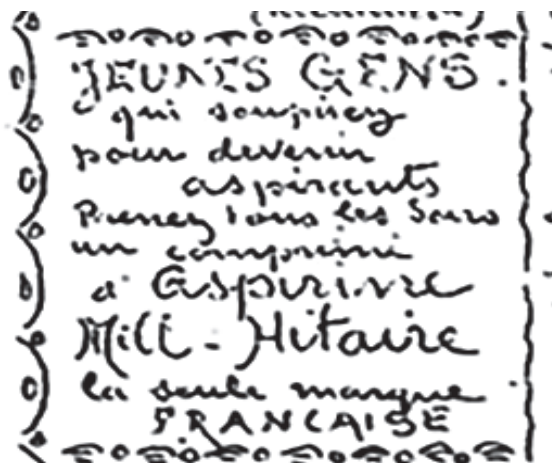 JEUNES GENS.
qui soupirez
pour devenir
aspirants
Prenez tous les jours
un comprimé
d'Aspirine
Mili-Hitaire
la seule marque
FRANCAISE